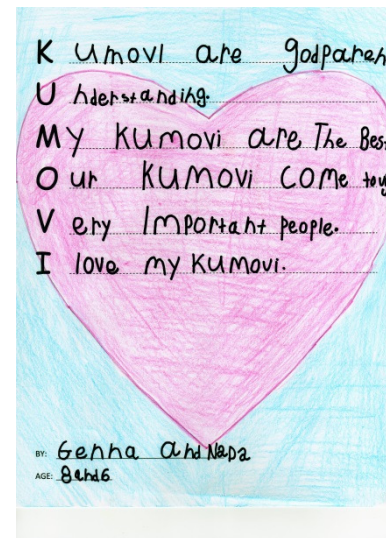 Kumovi are godparen
Understanding.
My Kumovi are The Bes
Our Kumovi come toy
Very Important people.
I love my Kumovi.
BY: Genna and Nada
AGE: 8and6